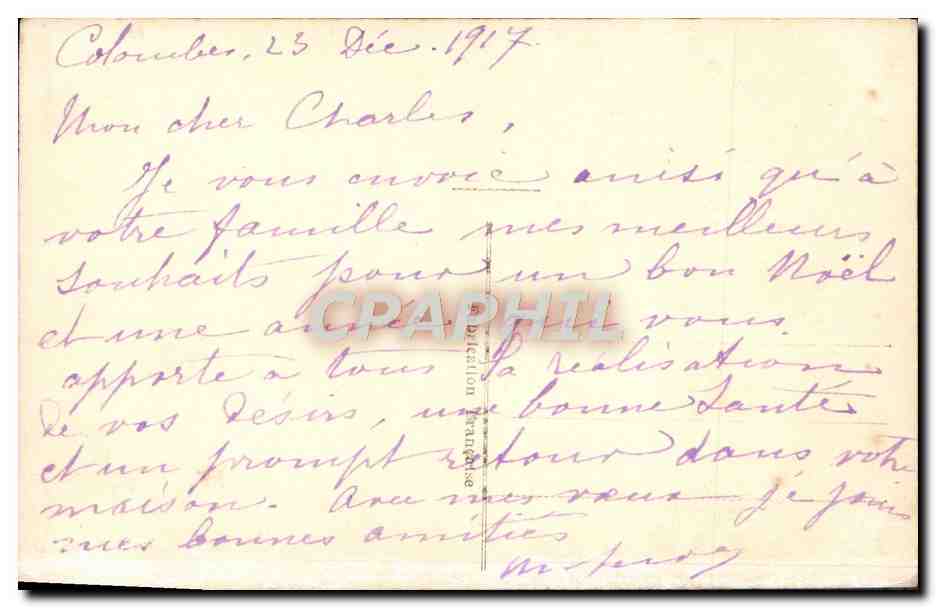 Colombes, 23 Déc. 1917.
Mon cher Charles,
Je vous envoie ainsi qu'à
votre famille mes meilleurs
souhaits pour un bon Noël
et une année qui vous
apporte à tous la réalisation
de vos désirs, une bonne santé
et un prompt retour dans votre
maison. Avec mes vœux je joins
mes bonnes amitiés
Fabrication Française
CPAPHIL